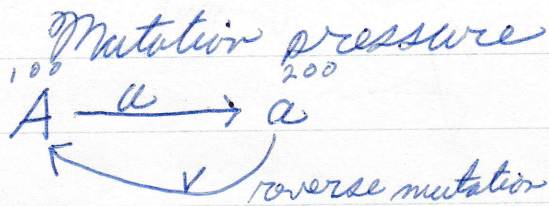 Mutation pressure
100 200
A u a
v
reverse mutation